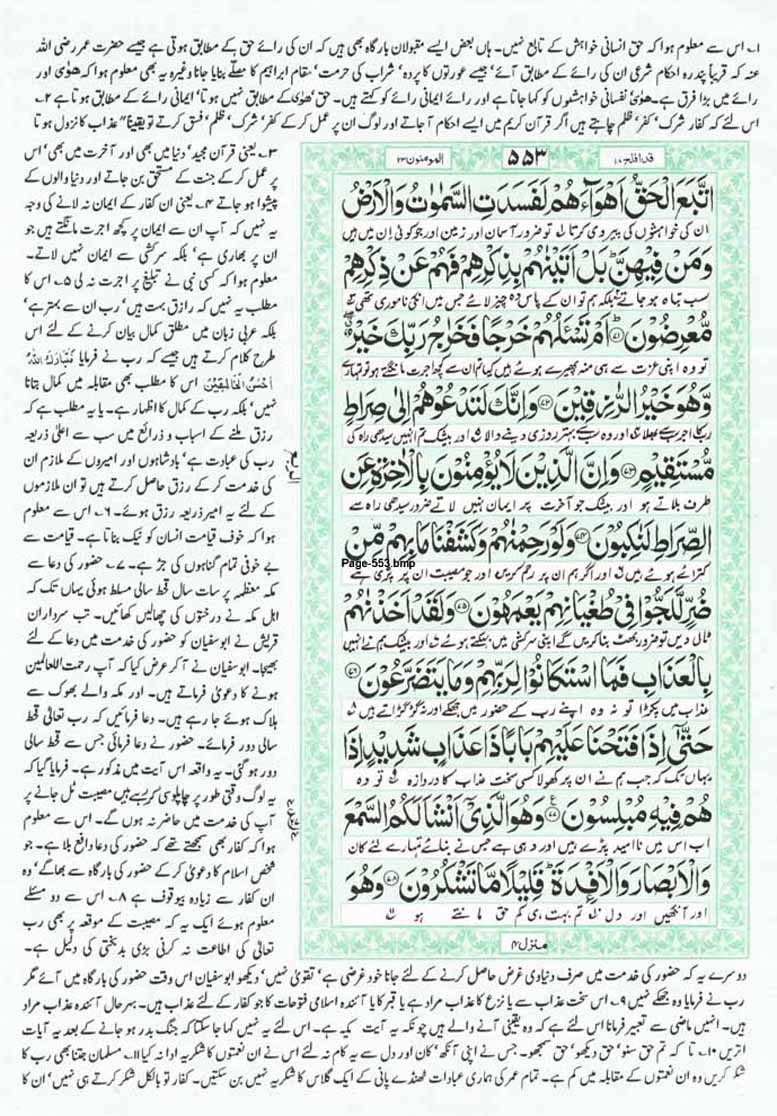 ۱۔ اس سے معلوم ہوا کہ حق انسانی خواہش کے تابع نہیں۔ ہاں بعض ایسے مقبولان بارگاہ بھی ہیں کہ ان کی رائے حق کے مطابق ہوتی ہے جیسے حضرت عمر رضی اللہ
عنہ کہ قریباً پندرہ احکام شرعی ان کی رائے کے مطابق آئے' جیسے عورتوں کا پردہ' شراب کی حرمت' مقام ابراہیم کا مصلّے بنایا جانا وغیرہ یہ بھی معلوم ہوا کہ ھوٰی اور
رائے میں بڑا فرق ہے۔ ھوٰی' نفسانی خواہشوں کو کہا جاتا ہے اور رائے ایمانی رائے کو کہتے ہیں۔ حق' ھوٰی کے مطابق نہیں ہوتا' ایمانی رائے کے مطابق ہوتا ہے ۲۔
اس لئے کہ کفار شرک' کفر' ظلم چاہتے ہیں اگر قرآن کریم میں ایسے احکام آ جاتے اور لوگ ان پر عمل کر کے کفر' شرک' ظلم' فسق کرتے تو یقیناً" عذاب کا نزول ہوتا
قد افلح ۱۸
۵۵۳
المومنون ۲۳
اتَّبَعَ الْحَقُّ اَهْوَآءَهُمْ لَفَسَدَتِ السَّمٰوٰتُ وَالْاَرْضُ
ان کی خواہشوں کی پیروی کرتا تو ضرور آسمان اور زمین اور جو کوئی ان میں ہیں
وَمَنْ فِيْهِنَّ ؕ بَلْ اَتَيْنٰهُمْ بِذِكْرِهِمْ فَهُمْ عَنْ ذِكْرِهِمْ
سب تباہ ہو جاتے بلکہ ہم تو ان کے پاس وہ چیز لائے جس میں انکی ناموری تھی
مُّعْرِضُوْنَ ﴿۷۱﴾ اَمْ تَسْئَلُهُمْ خَرْجًا فَخَرَاجُ رَبِّكَ خَيْرٌ
تو وہ اپنی عزت سے ہی منہ پھیرے ہوئے ہیں کیا تم ان سے کچھ اجرت مانگتے ہو تو تمہارے
وَّهُوَ خَيْرُ الرّٰزِقِيْنَ ﴿۷۲﴾ وَاِنَّكَ لَتَدْعُوْهُمْ اِلٰى صِرَاطٍ
رب کا اجر سب سے بھلا اور وہ سب سے بہتر روزی دینے والا اور بیشک تم انہیں سیدھی راہ کی
مُّسْتَقِيْمٍ ﴿۷۳﴾ وَاِنَّ الَّذِيْنَ لَا يُؤْمِنُوْنَ بِالْاٰخِرَةِ عَنِ
طرف بلاتے ہو اور بیشک جو آخرت پر ایمان نہیں لاتے ضرور سیدھی راہ سے
الصِّرَاطِ لَنٰكِبُوْنَ ﴿۷۴﴾ وَلَوْ رَحِمْنٰهُمْ وَكَشَفْنَا مَا بِهِمْ مِّنْ
Page-553.bmp
کترائے ہوئے ہیں اور اگر ہم ان پر رحم کریں اور جو مصیبت ان پر پڑی ہے
ضُرٍّ لَّلَجُّوْا فِيْ طُغْيَانِهِمْ يَعْمَهُوْنَ ﴿۷۵﴾ وَلَقَدْ اَخَذْنٰهُمْ
ٹال دیں تو ضرور بھٹ پنا کریں گے اپنی سرکشی میں بہکتے ہوئے اور بیشک ہم نے انہیں
بِالْعَذَابِ فَمَا اسْتَكَانُوْا لِرَبِّهِمْ وَمَا يَتَضَرَّعُوْنَ ﴿۷۶﴾
عذاب میں پکڑا تو نہ وہ اپنے رب کے حضور میں جھکے اور نہ گڑگڑاتے ہیں
حَتّٰى اِذَا فَتَحْنَا عَلَيْهِمْ بَابًا ذَا عَذَابٍ شَدِيْدٍ اِذَا
یہاں تک کہ جب ہم نے ان پر کھولا کسی سخت عذاب کا دروازہ تو وہ
هُمْ فِيْهِ مُبْلِسُوْنَ ﴿۷۷﴾ وَهُوَ الَّذِيْ اَنْشَاَ لَكُمُ السَّمْعَ
اب اس میں ناامید پڑے ہیں اور وہی ہے جس نے بنائے تمہارے لئے کان
وَالْاَبْصَارَ وَالْاَفْـِٕدَةَ ؕ قَلِيْلًا مَّا تَشْكُرُوْنَ ﴿۷۸﴾ وَهُوَ
اور آنکھیں اور دل تم بہت ہی کم حق مانتے ہو
منزل ۴
۳۔ یعنی قرآن مجید' دنیا میں بھی اور آخرت میں بھی' اس
پر عمل کر کے جنت کے مستحق بن جاتے اور دنیا والوں کے
پیشوا ہو جاتے ۴۔ یعنی ان کفار کے ایمان نہ لانے کی وجہ
یہ نہیں کہ آپ ان سے ایمان پر کچھ اجرت مانگتے ہیں جو
ان پر بھاری ہے' بلکہ سرکشی سے ایمان نہیں لاتے۔
معلوم ہوا کہ کسی نبی نے تبلیغ پر اجرت نہ لی ۵۔ اس کا
مطلب یہ نہیں کہ رازق بہت ہیں' رب ان سے بہتر ہے'
بلکہ عربی زبان میں مطلق کمال بیان کرنے کے لئے اس
طرح کلام کرتے ہیں جیسے کہ رب نے فرمایا فَتَبٰرَكَ اللّٰهُ
اَحْسَنُ الْخَالِقِيْنَ اس کا مطلب بھی مقابلہ میں کمال بتانا
نہیں' بلکہ رب کے کمال کا اظہار ہے۔ یا یہ مطلب ہے کہ
رزق ملنے کے اسباب و ذرائع میں سب سے اعلیٰ ذریعہ
رب کی عبادت ہے' بادشاہوں اور امیروں کے ملازم ان
کی خدمت کر کے رزق حاصل کرتے ہیں تو ان ملازموں
کے لئے یہ امیر ذریعہ رزق ہوئے۔ ۶۔ اس سے معلوم
ہوا کہ خوف قیامت انسان کو نیک بناتا ہے۔ قیامت سے
بے خوفی تمام گناہوں کی جڑ ہے۔ ۷۔ حضور کی دعا سے
مکہ معظمہ پر سات سال قحط سالی مسلط ہوئی یہاں تک کہ
اہل مکہ نے درختوں کی چھالیں کھائیں۔ تب سرداران
قریش نے ابوسفیان کو حضور کی خدمت میں دعا کے لئے
بھیجا۔ ابوسفیان نے آ کر عرض کیا کہ آپ رحمت اللعالمین
ہونے کا دعویٰ فرماتے ہیں۔ اور مکہ والے بھوک سے
ہلاک ہوئے جا رہے ہیں۔ دعا فرمائیں کہ رب تعالیٰ قحط
سالی دور فرمائے۔ حضور نے دعا فرمائی جس سے قحط سالی
دور ہو گئی۔ یہ واقعہ اس آیت میں مذکور ہے۔ فرمایا گیا کہ
یہ لوگ وقتی طور پر چاپلوسی کر رہے ہیں مصیبت ٹل جانے پر
آپ کی خدمت میں حاضر نہ ہوں گے۔ اس سے معلوم
ہوا کہ کفار بھی سمجھتے تھے کہ حضور کی دعا دافع بلا ہے۔ جو
شخص اسلام کا دعویٰ کر کے حضور کی بارگاہ سے بھاگے' وہ
ان کفار سے زیادہ بیوقوف ہے ۸۔ اس سے دو مسئلے
معلوم ہوئے ایک یہ کہ مصیبت کے موقعہ پر بھی رب
تعالیٰ کی اطاعت نہ کرنی بڑی بدبختی کی دلیل ہے۔
دوسرے یہ کہ حضور کی خدمت میں صرف دنیاوی غرض حاصل کرنے کے لئے جانا خود غرضی ہے' تقویٰ نہیں' دیکھو ابوسفیان اس وقت حضور کی بارگاہ میں آئے مگر
رب نے فرمایا وہ جھکے نہیں ۹۔ اس سخت عذاب سے یا نزع کا عذاب مراد ہے یا قبر کا یا آئندہ اسلامی فتوحات کا جو کفار کے لئے عذاب ہیں۔ بہرحال آئندہ عذاب مراد
ہیں۔ انہیں ماضی سے تعبیر فرمانا اس لئے ہے کہ وہ یقینی آنے والے ہیں چونکہ یہ آیت مکیہ ہے۔ اس لئے یہ نہیں کہا جا سکتا کہ جنگ بدر ہو جانے کے بعد یہ آیات
اتریں ۱۰۔ تا کہ تم حق سنو' حق دیکھو' حق سمجھو۔ جس نے اپنی آنکھ' کان اور دل سے یہ کام نہ لئے اس نے ان نعمتوں کا شکریہ ادا نہ کیا ۱۱۔ مسلمان جتنا بھی رب کا
شکر کریں وہ ان نعمتوں کے مقابلہ میں کم ہے۔ تمام عمر کی ہماری عبادات ٹھنڈے پانی کے ایک گلاس کا شکریہ نہیں بن سکتیں۔ کفار تو بالکل شکر کرتے ہی نہیں' ان کا